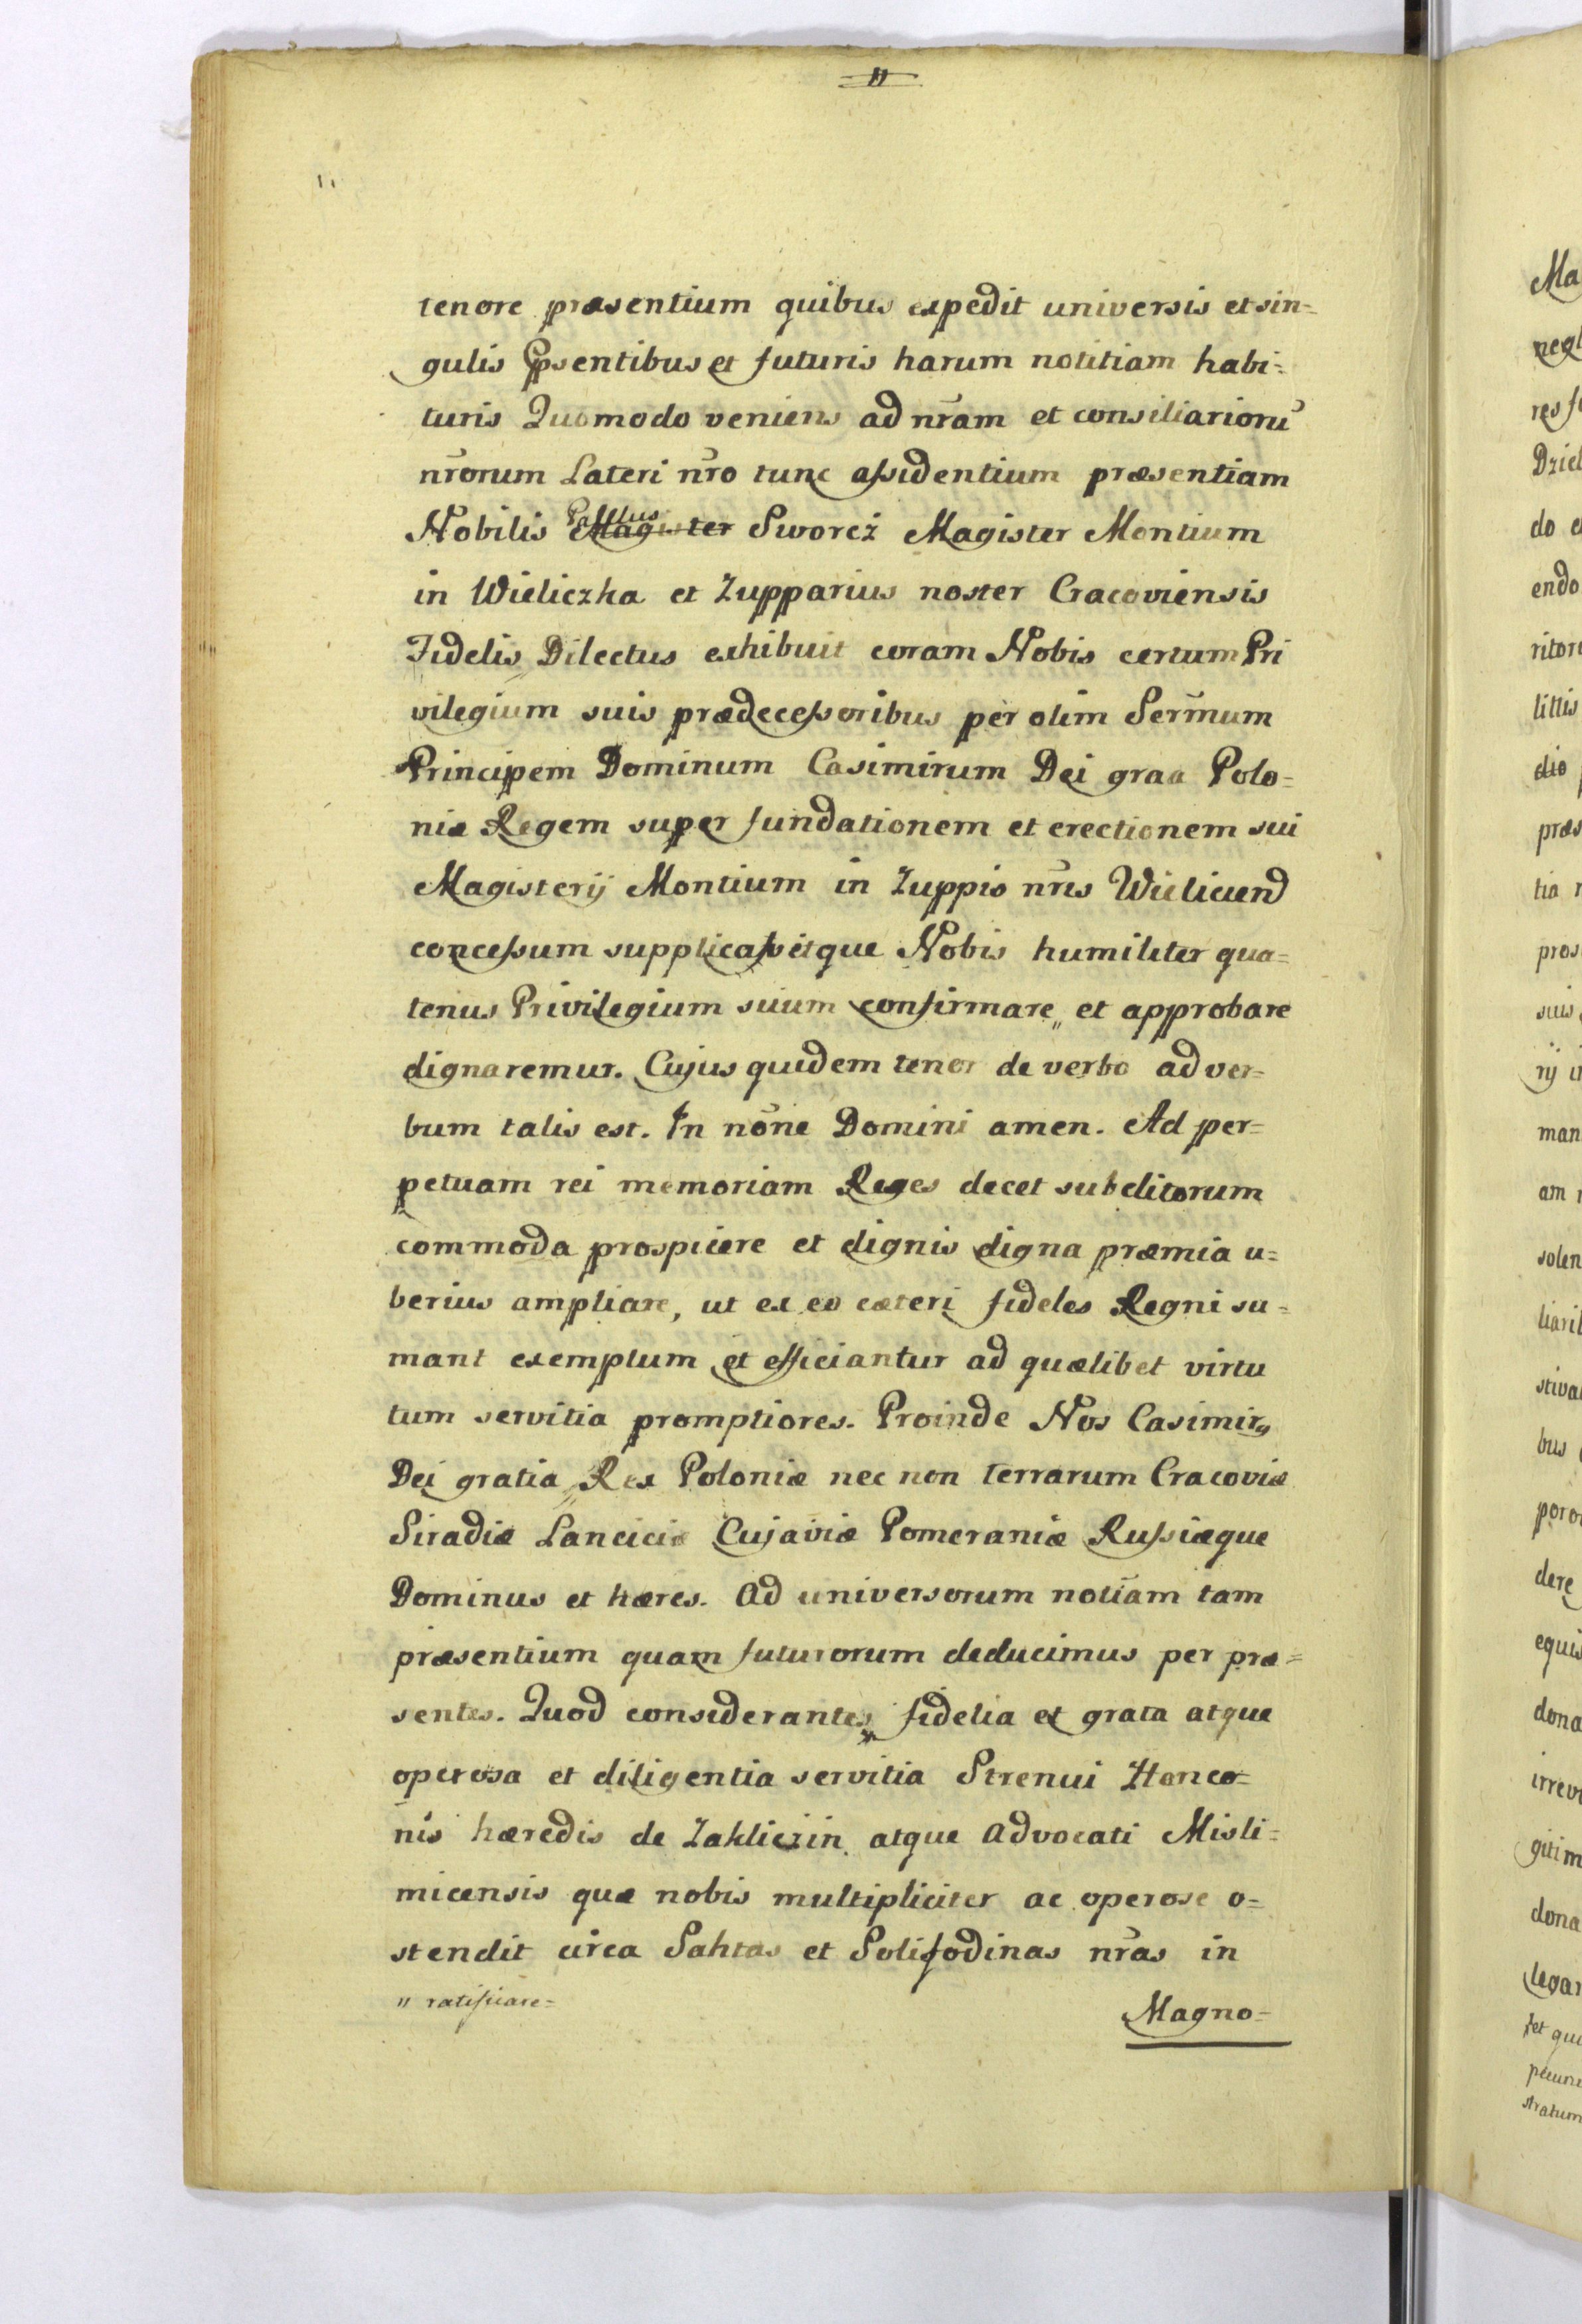 11
11
tenore præsentium quibus expedit universis et sin=
gulis Ppsentibus et futuris harum notitiam habi=
turis Quomodo veniens ad nr̃am et consiliarioru͂
nr̃orum Lateri nr̃o tunc assidentium præsentiam
Nobilis Paulus Magister Sworcz Magister Montium
in Wieliczka et Zupparius noster Cracoviensis
Fidelis Dilectus exhibuit coram Nobis certum Pri
vilegium suis prædecessoribus per olim Serm̃um
Principem Dominum Casimirum Dei graa Polo=
niæ Regem super fundationem et erectionem sui
Magisterij Montium in Zuppis nr̃is Wieliciend
concessum supplicavitque Nobis humiliter qua=
tenus Privilegium suum confirmare " et approbare
dignaremur. Cujus quidem tenor de verbo ad ver=
bum talis est. In nõne Domini amen. Ad per=
petuam rei memoriam Reges decet subditorum
commoda prospicere et dignis digna præmia u=
berius ampliare, ut ex eo cæteri fideles Regni su=
mant exemplum et efficiantur ad quælibet virtu
tum servitia promptiores. Proinde Nos Casimirꝰ
Dei gratia Rex Poloniæ nec non terrarum Cracoviæ
Siradiæ Lanciciæ Cujaviæ Pomeraniæ Russiæque
Dominus et hæres. Ad universorum notiãm tam
præsentium quam futurorum deducimus per præ=
sentes. Quod considerantes fidelia et grata atque
operosa et diligentia servitia Strenui Hanco=
nis hæredis de Zakliczin atque Advocati Misli=
micensis quæ nobis multipliciter ac operose o=
stendit circa Sahtas et Solifodinas nr̃as in
" ratificare=
Magno=